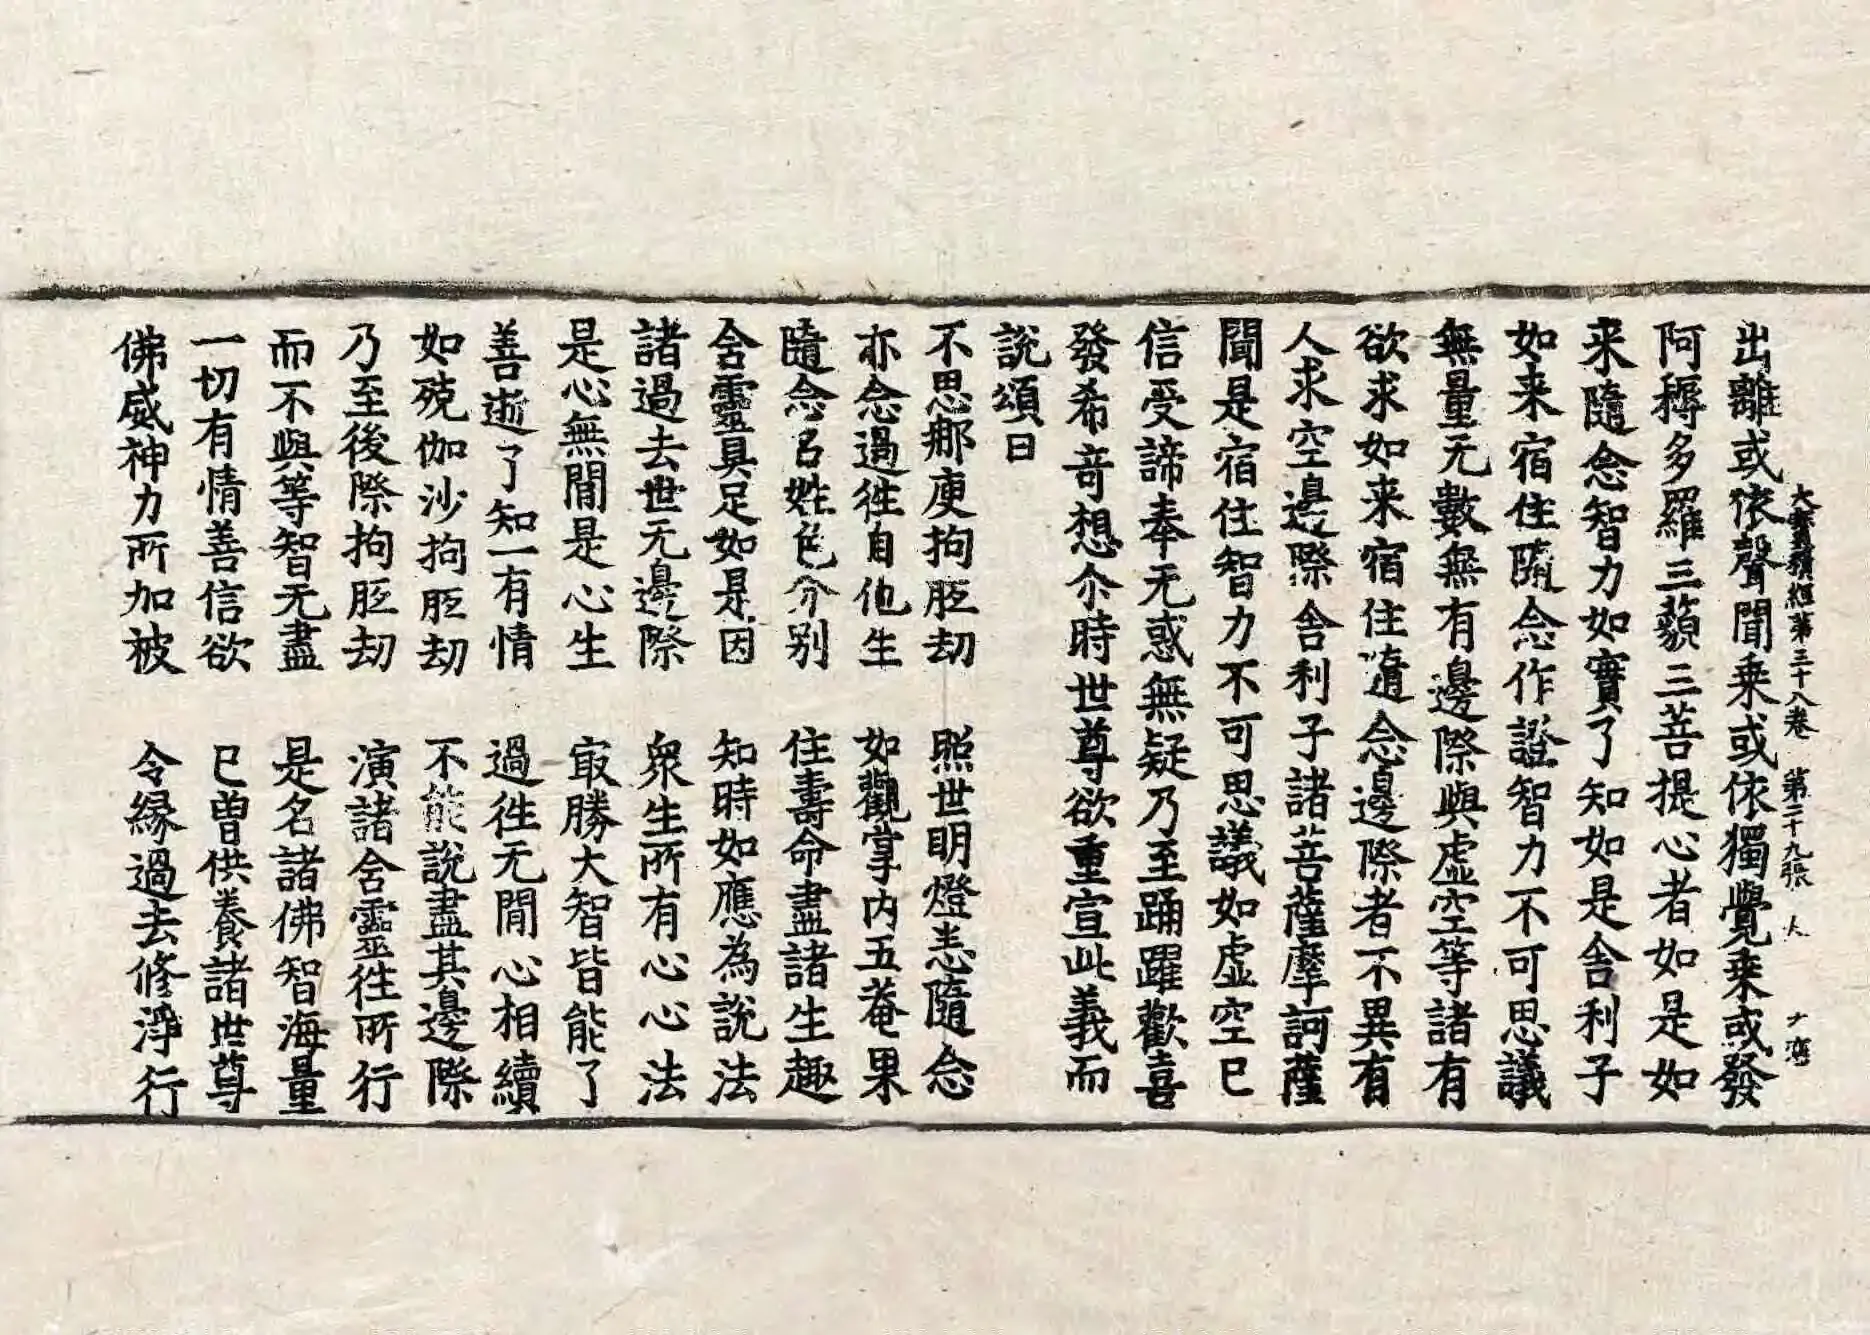 大寶積經第三十八卷 第二十九張 人
出離或依聲聞乗或依獨覺乗或發
阿耨多羅三藐三菩提心者如是如
来隨念智力如實了知如是舎利子
如来宿住隨念作證智力不可思議
無量无數無有邊際與虚空等諸有
欲求如来宿住隨念邊際者不異有
人求空邊際舎利子諸菩薩摩訶薩
聞是宿住智力不可思議如虚空已
信受諦奉无惑無疑乃至踊躍歡喜
發希竒想尒時世尊欲重宣此義而
說頌曰
不思那庾拘胝劫 照世明燈恙隨念
亦念過徃自他生 如觀掌内五菴果
隨念名姓色分别 住壽命盡諸生趣
舍靈具足如是因 知時如應為説法
諸過去世无邊際 衆生所有心心法
是心無間是心生 㝡勝大智皆能了
善逝了知一有情 過徃无間心相續
如殑伽沙拘胝劫 不能說盡其邊際
乃至後際拘胝劫 演諸舍靈徃所行
而不與等智无盡 是名諸佛智海量
一切有情善信欲 已曽供養諸世尊
佛威神力所加被 令縁過去修淨行